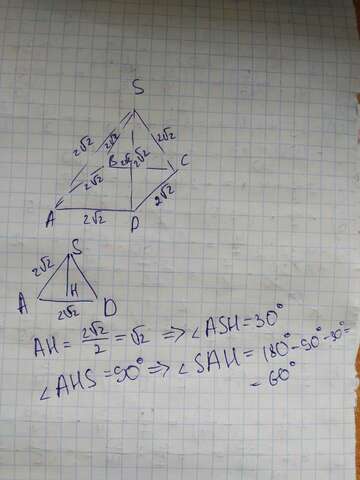 S
2√2 2√2 2√2
B 2√2 2√2 C
2√2 2√2
A 2√2 D
S
2√2
A H D
2√2
AH = 2√2/2 = √2 ⟹ ∠ASH = 30°
∠AHS = 90° ⟹ ∠SAH = 180° - 90° - 30° =
= 60°